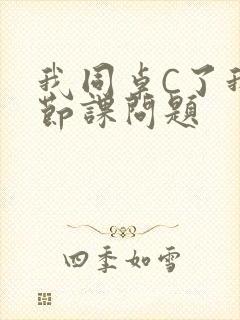 我同卓C了我
节課問題
四季如雪